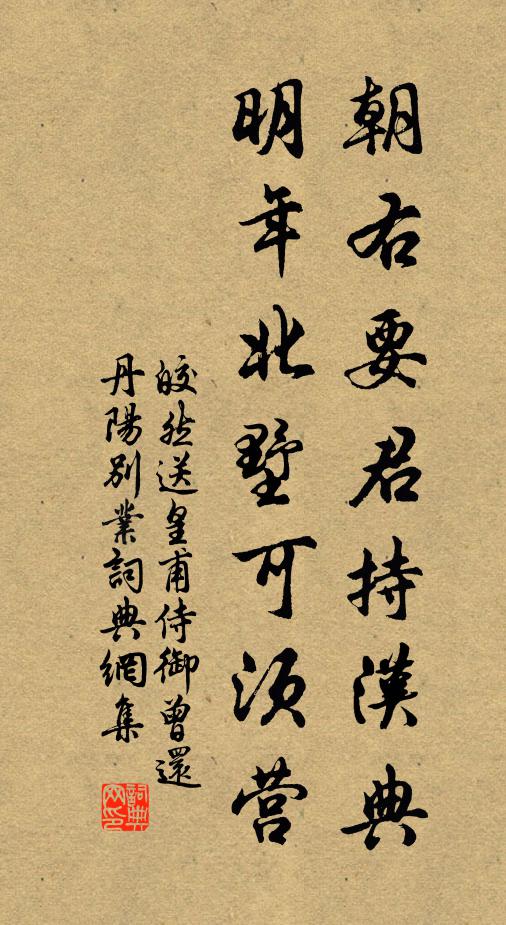 朝右要君持漢典
明年北墅可須營
皎然送皇甫侍御曾還
丹陽別業詞典網集
詞典網印